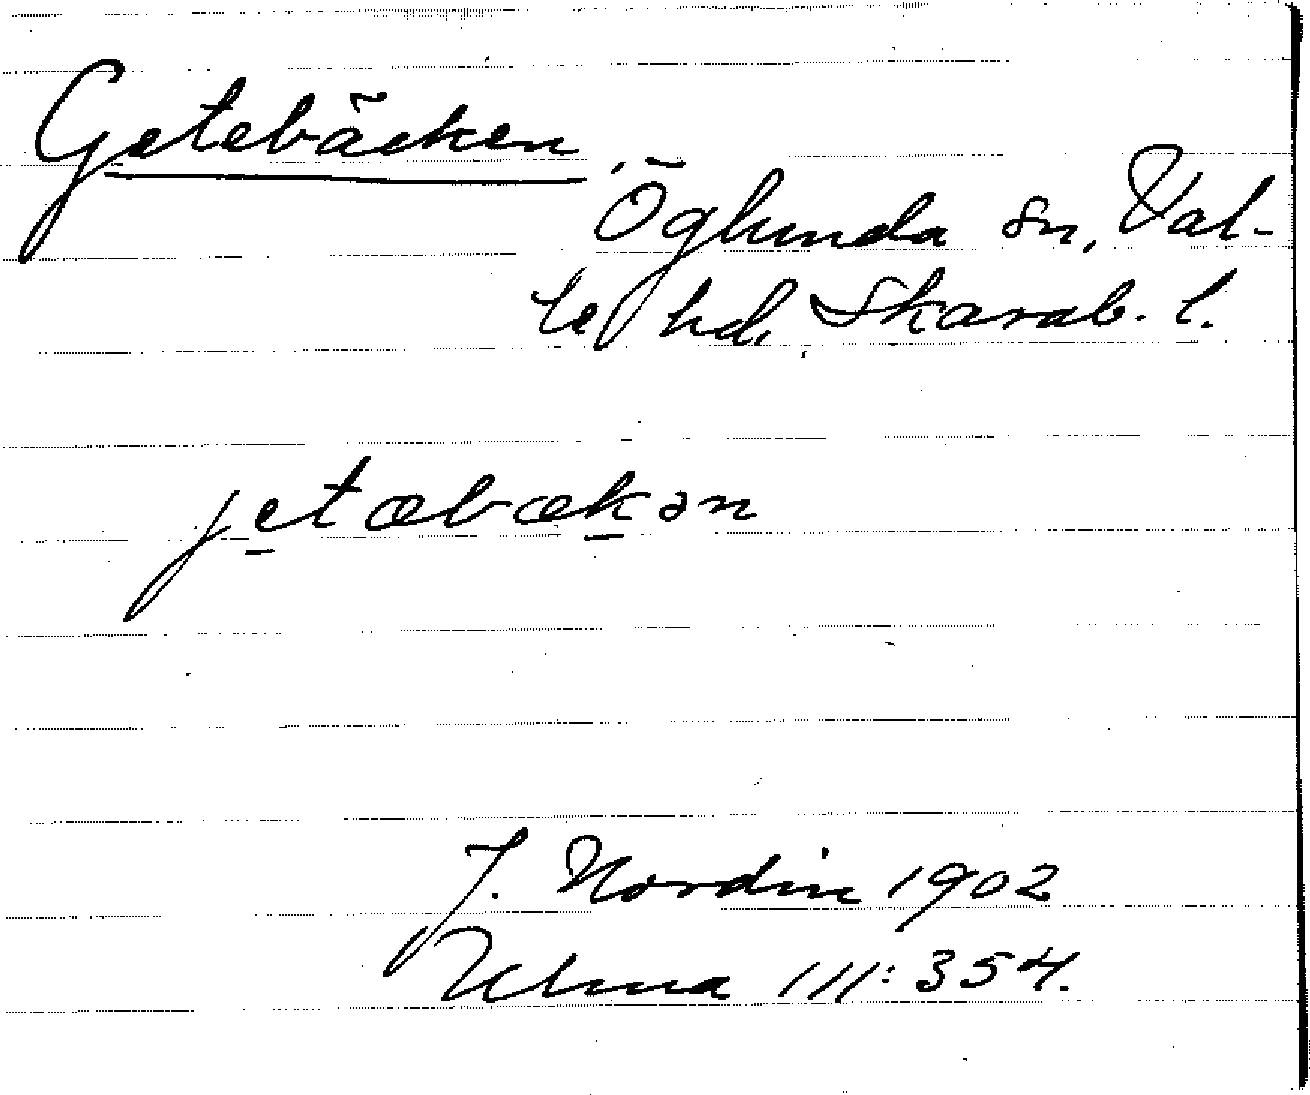 Getebäcken,
Öglunda sn, Val-
le hd, Skarab. l.
jetæbækən
J. Nordin 1902
Ulma 111:354.